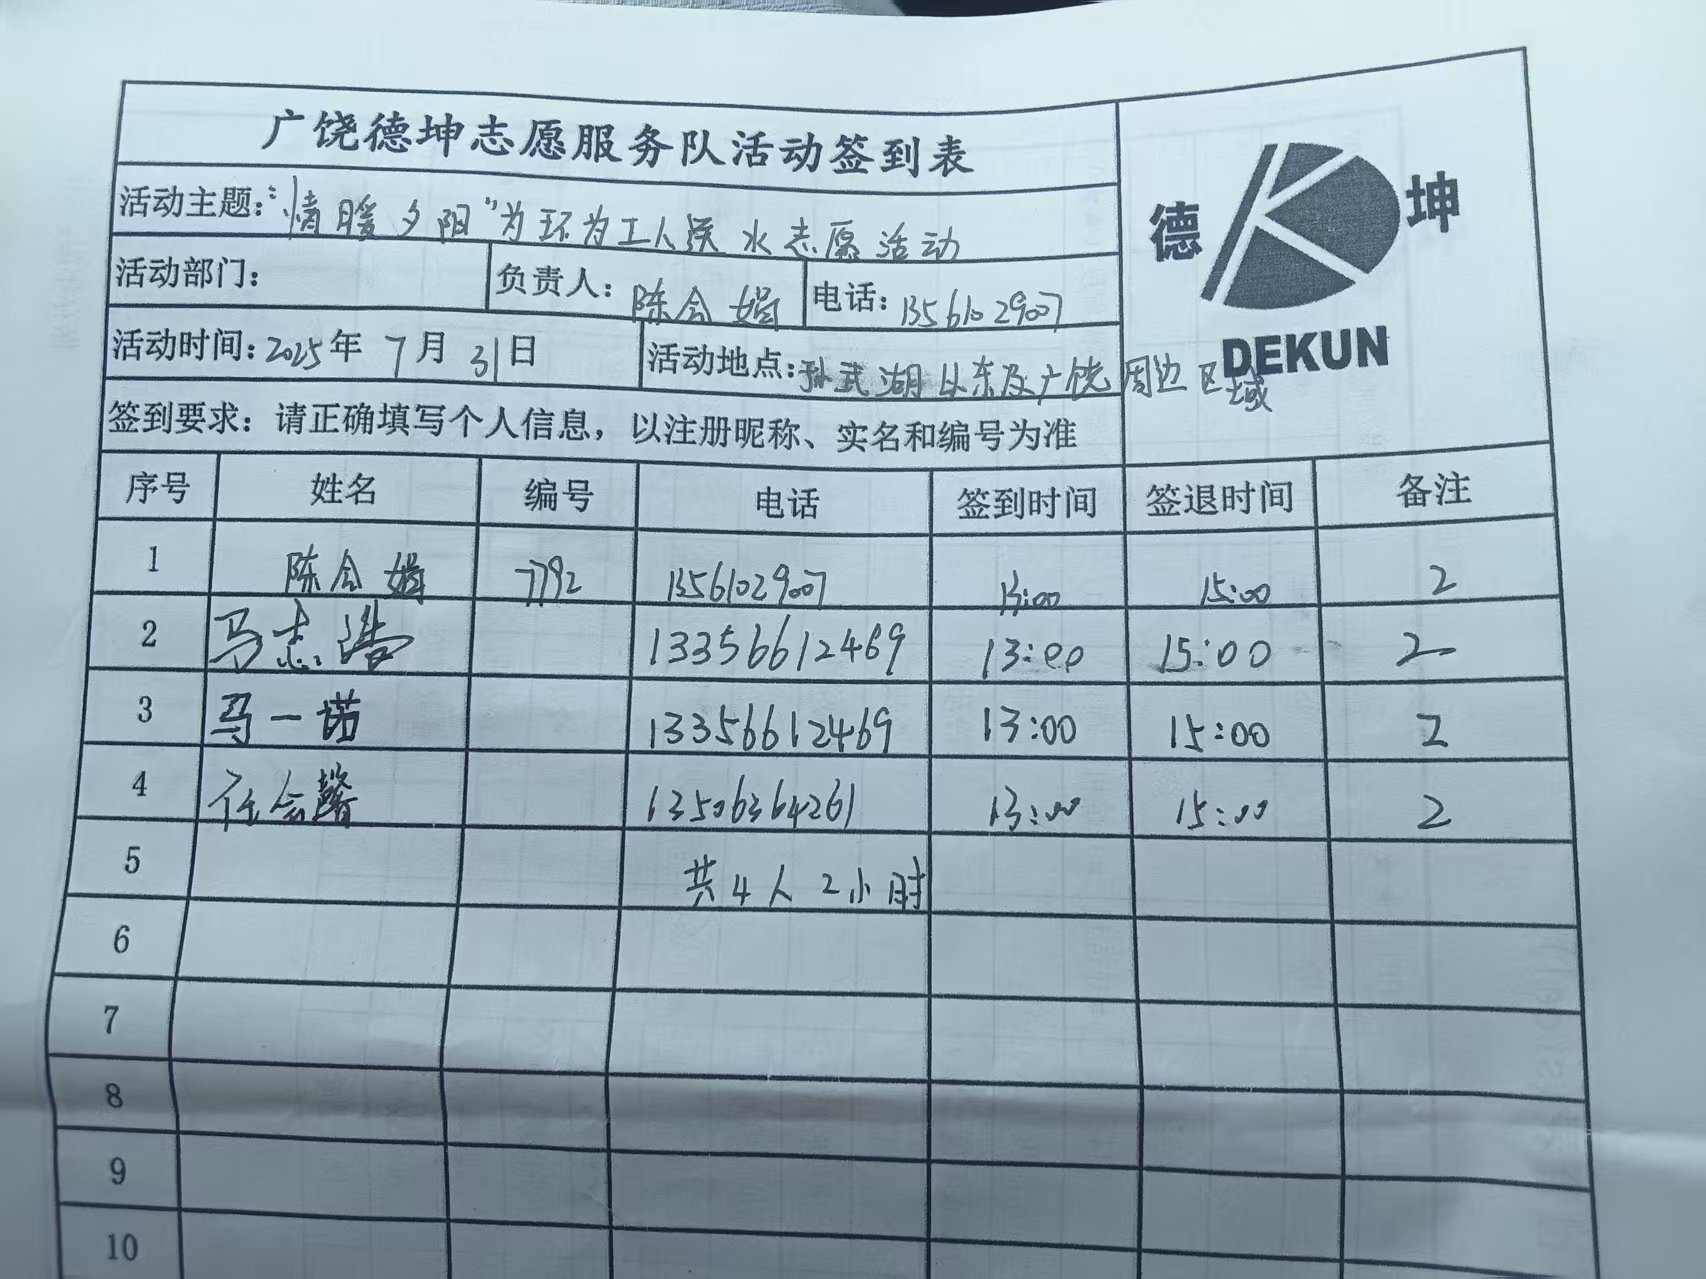 广饶德坤志愿服务队活动签到表
德 坤
DEKUN
活动主题:“情暖夕阳”为环为工人送水志愿活动
活动部门: 负责人: 陈会娟 电话: 13561029007
活动时间: 2025年 7月 31日 活动地点: 孙武湖以东及广饶周边区域
签到要求: 请正确填写个人信息，以注册昵称、实名和编号为准
序号 姓名 编号 电话 签到时间 签退时间 备注
1 陈会娟 7792 13561029007 13:00 15:00 2
2 马志浩 13356612469 13:00 15:00 2
3 马一诺 13356612469 13:00 15:00 2
4 任会馨 13506364261 13:00 15:00 2
5 共4人 2小时
6
7
8
9
10